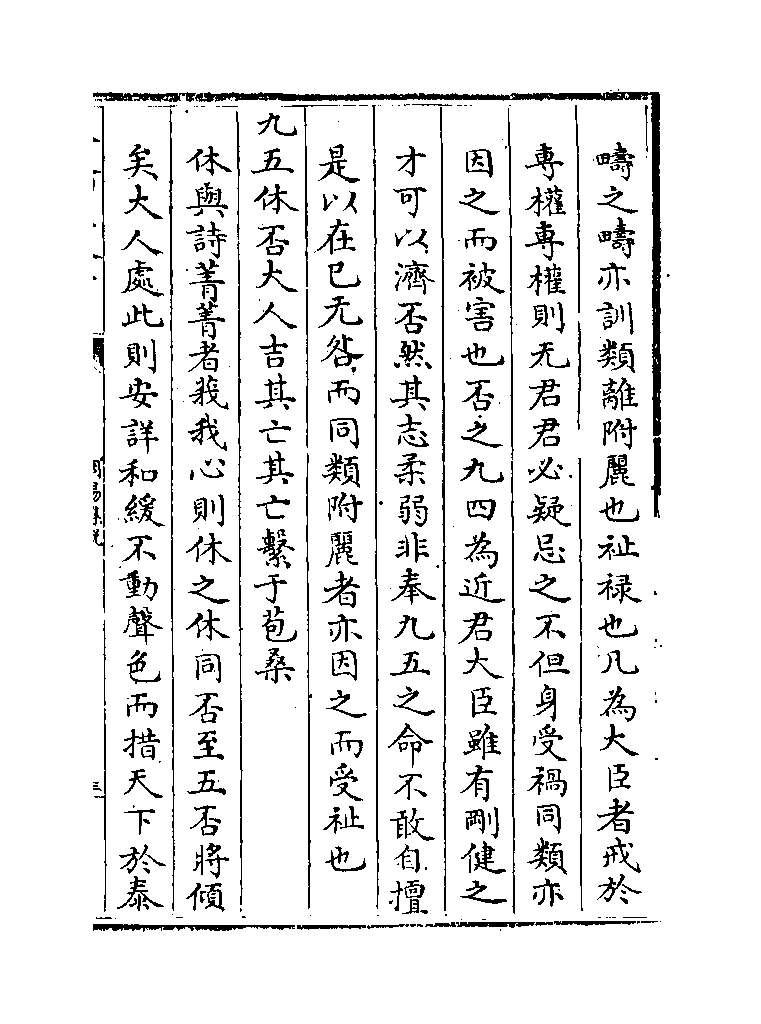 疇之疇亦訓類離附麗也祉禄也凡為大臣者戒於
專權專權則无君君必疑忌之不但身受禍同類亦
因之而被害也否之九四為近君大臣雖有剛健之
才可以濟否然其志柔弱非奉九五之命不敢自擅
是以在已无咎而同類附麗者亦因之而受祉也
九五休否大人吉其亡其亡繫于苞桑
休與詩菁菁者莪我心則休之休同否至五否將傾
矣大人處此則安詳和緩不動聲色而措天下於泰
周易集說
三